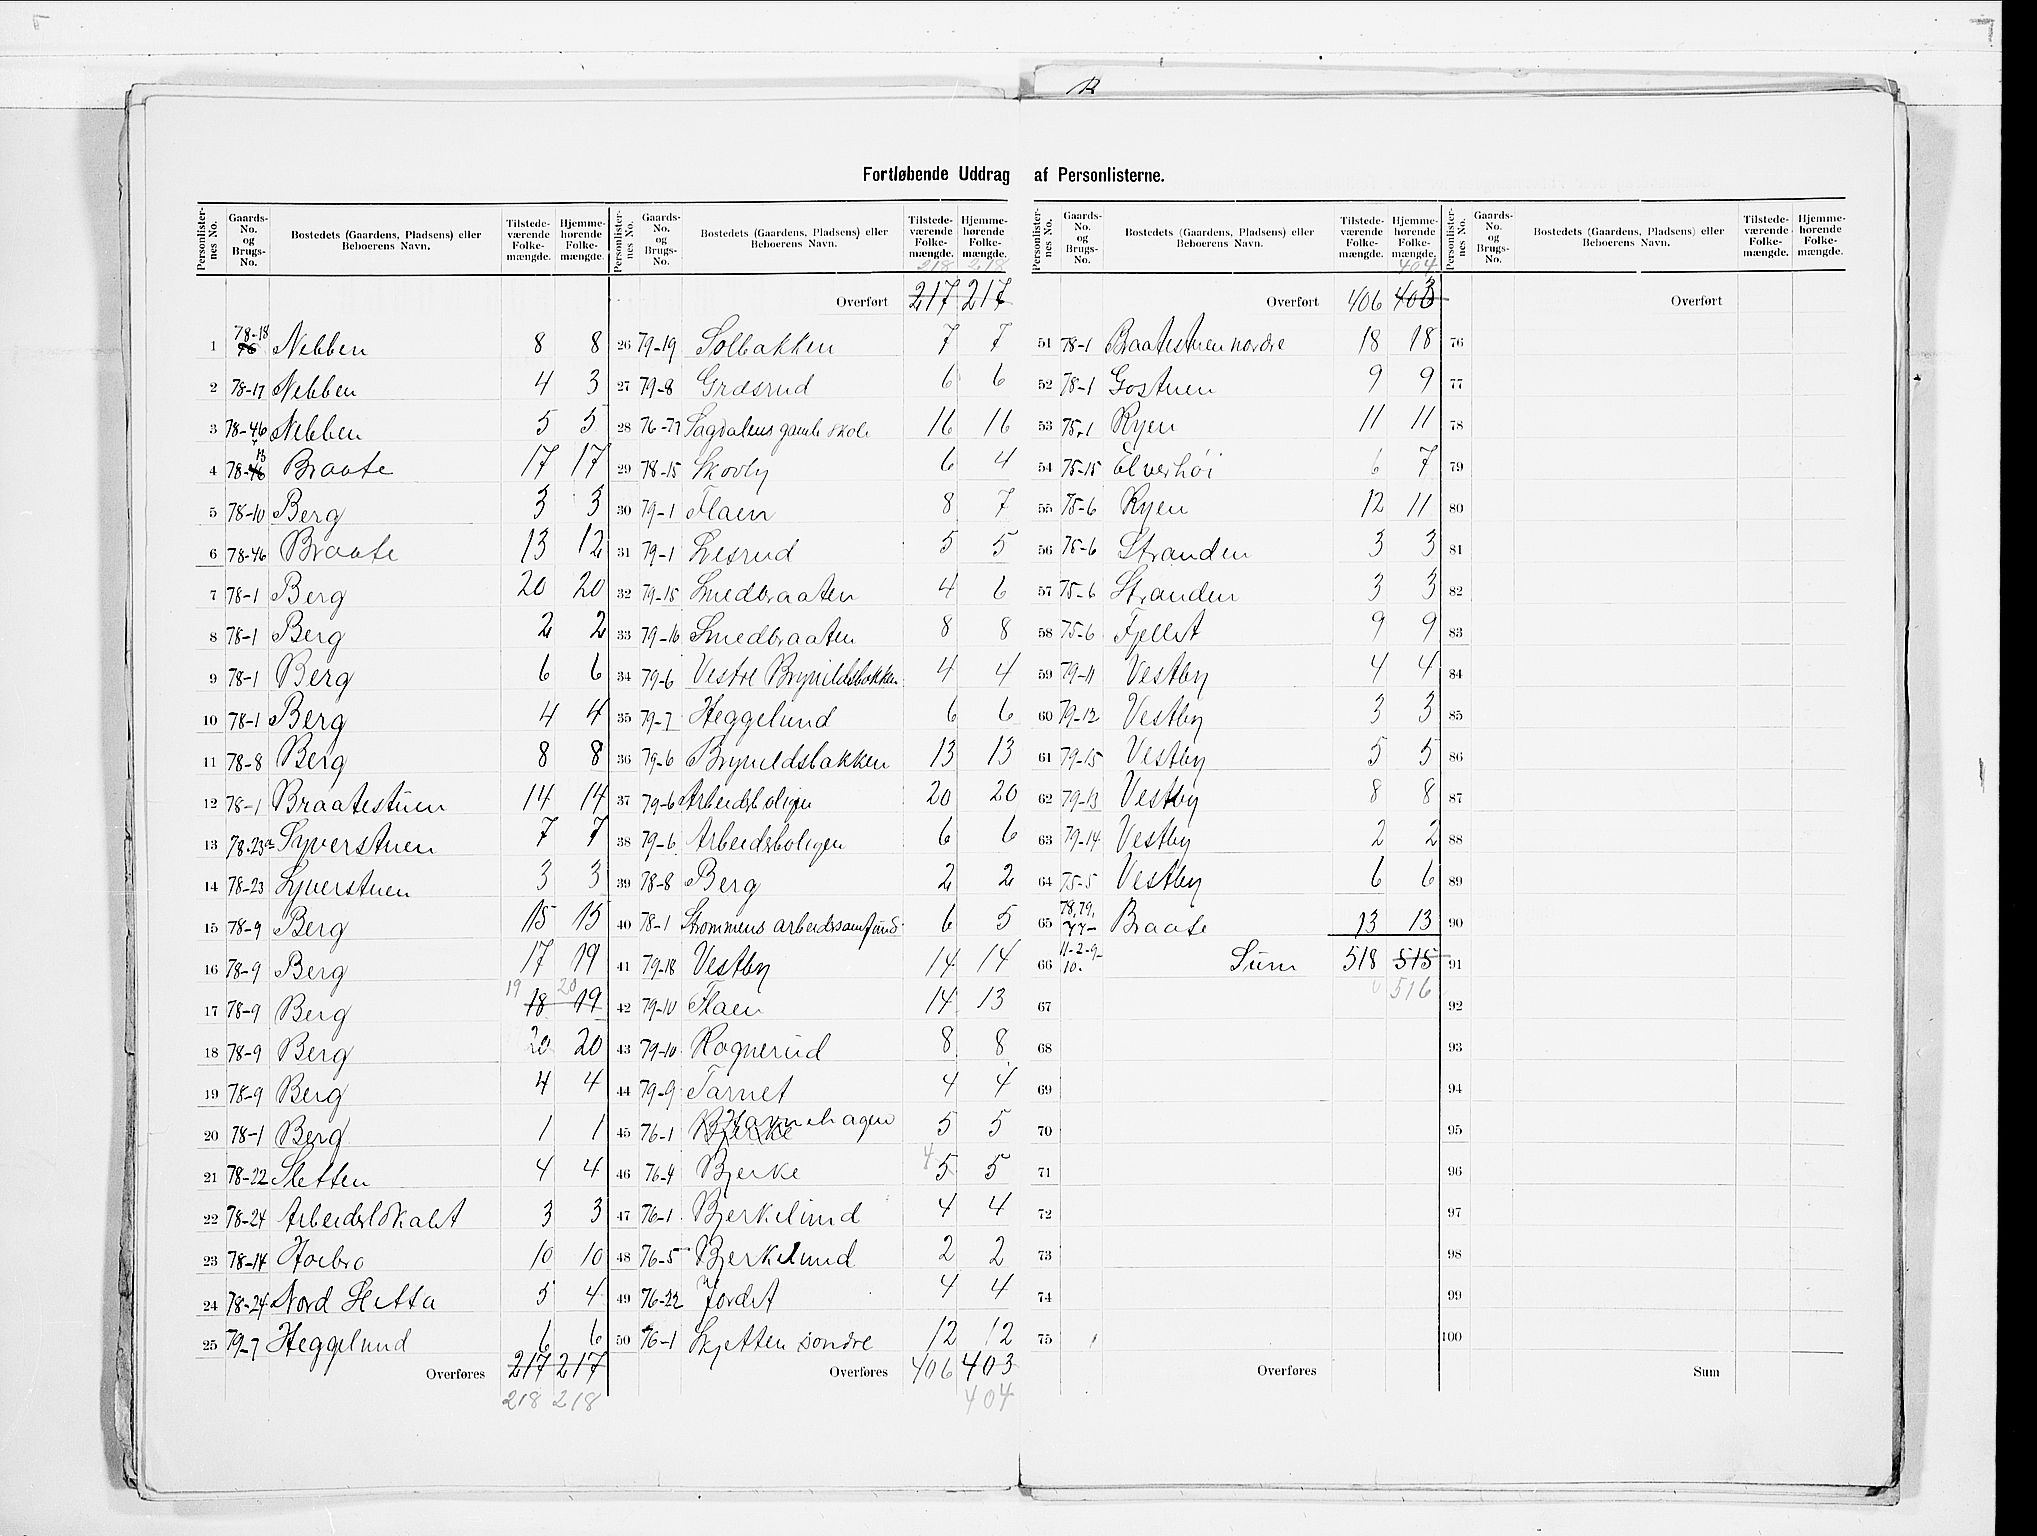 R
Fortløbende Uddrag af Personlisterne.
Personlister-nes No. Gaards-No. og Brugs-No. Bostedets (Gaardens, Pladsens) eller Beboerens Navn. Tilstede-værende Folke-mængde. Hjemme-hørende Folke-mængde.
1 78-18 Nebben 8 8
2 78-17 Nebben 4 3
3 78-46 Nebben 5 5
4 78-13 Braate 17 17
5 78-10 Berg 3 3
6 78-46 Braate 13 12
7 78-1 Berg 20 20
8 78-1 Berg 2 2
9 78-1 Berg 6 6
10 78-1 Berg 4 4
11 78-8 Berg 8 8
12 78-1 Braatestuen 14 14
13 78-23a Syverstuen 7 7
14 78-23 Syverstuen 3 3
15 78-9 Berg 15 15
16 78-9 Berg 17 19
17 78-9 Berg 19 18 20 19
18 78-9 Berg 20 20
19 78-9 Berg 4 4
20 78-1 Berg 1 1
21 78-22 Sletten 4 4
22 78-24 Arbeidslokalet 3 3
23 78-14 Hoebro 10 10
24 78-24 Nord Sletta 5 4
25 79-7 Heggelund 6 6
Overføres 217 217
218 218
Personlister-nes No. Gaards-No. og Brugs-No. Bostedets (Gaardens, Pladsens) eller Beboerens Navn. Tilstede-værende Folke-mængde. Hjemme-hørende Folke-mængde.
218 218
Overført 217 217
26 79-19 Solbakken 7 7
27 79-8 Græsrud 6 6
28 76-77 Sagdalens gamle skole 16 16
29 78-15 Skovly 6 4
30 79-1 Flaen 8 7
31 79-1 Lesrud 5 5
32 79-15 Smedbraaten 4 6
33 79-16 Smedbraaten 8 8
34 79-6 Vestre Brynildsbakken 4 4
35 79-7 Heggelund 6 6
36 79-6 Brynildsbakken 13 13
37 79-6 Arbeidsboligen 20 20
38 79-6 Arbeidsboligen 6 6
39 78-8 Berg 2 2
40 78-1 Strømmens arbeidersamfund 6 5
41 79-18 Vestby 14 14
42 79-10 Flaen 14 13
43 79-10 Rognerud 8 8
44 79-9 Tarnet 4 4
45 76-1 Bjerke Havnehagen 5 5
46 76-4 Bjerke 4 5 5
47 76-1 Bjerkelund 4 4
48 76-5 Bjerkelund 2 2
49 76-22 Jordet 4 4
50 76-1 Skjetten søndre 12 12
Overføres 406 403
404
Personlister-nes No. Gaards-No. og Brugs-No. Bostedets (Gaardens, Pladsens) eller Beboerens Navn. Tilstede-værende Folke-mængde. Hjemme-hørende Folke-mængde.
404
Overført 406 403
51 78-1 Braatestuen nordre 18 18
52 78-1 Gostuen 9 9
53 75-1 Ryen 11 11
54 75-15 Elverhöi 6 7
55 75-6 Ryen 12 11
56 75-6 Stranden 3 3
57 75-6 Stranden 3 3
58 75-6 Fjellet 9 9
59 79-11 Vestby 4 4
60 79-12 Vestby 3 3
61 79-15 Vestby 5 5
62 79-13 Vestby 8 8
63 79-14 Vestby 2 2
64 75-5 Vestby 6 6
65 78, 79, 77- Braate 13 13
66 11-2-9-10. Sum 518 515
516
67
68
69
70
71
72
73
74
75
Overføres
Personlister-nes No. Gaards-No. og Brugs-No. Bostedets (Gaardens, Pladsens) eller Beboerens Navn. Tilstede-værende Folke-mængde. Hjemme-hørende Folke-mængde.
Overført
76
77
78
79
80
81
82
83
84
85
86
87
88
89
90
91
92
93
94
95
96
97
98
99
100
Sum